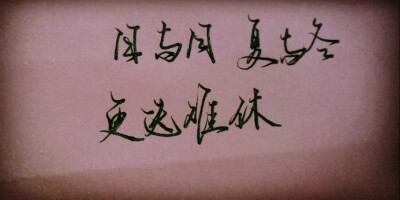 国与国 夏与冬
更迭难休